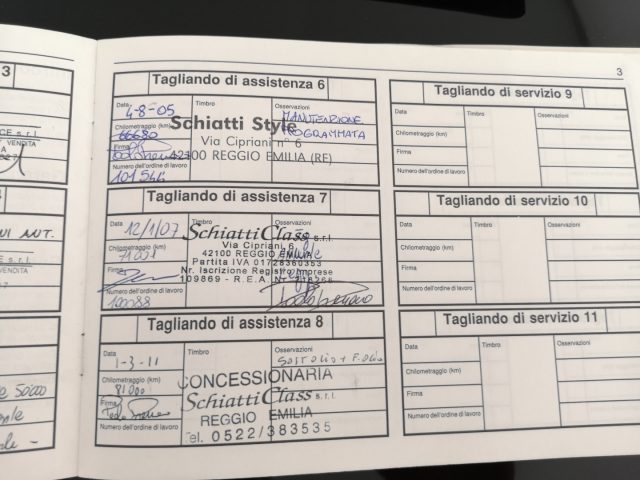 3
CE s.r.l.
VENDITA
NI AUT.
CE s.r.l.
VENDITA
3
Tagliando di assistenza 6
Data
Timbro
Osservazioni
4-8-05
MANUTENZIONE
PROGRAMMATA
Chilometraggio (km)
66680
Schiatti Style
Via Cipriani n° 6
42100 REGGIO EMILIA (RE)
Firma
Numero dell'ordine di lavoro
101546
Tagliando di assistenza 7
Data
Timbro
Osservazioni
12/1/07
Chilometraggio (km)
Schiatti Class s.r.l.
Via Cipriani, 6
42100 REGGIO EMILIA
Partita IVA 01728360353
Nr. Iscrizione Registro Imprese
109869 - R.E.A. N.
Firma
Numero dell'ordine di lavoro
Tagliando di assistenza 8
Data
Timbro
Osservazioni
1-3-11
SOST OLIO + F. OLIO
Chilometraggio (km)
81000
CONCESSIONARIA
Schiatti Class s.r.l.
REGGIO EMILIA
Tel. 0522/383535
Firma
Numero dell'ordine di lavoro
Tagliando di servizio 9
Data
Timbro
Osservazioni
Chilometraggio (km)
Firma
Numero dell'ordine di lavoro
Tagliando di servizio 10
Data
Timbro
Osservazioni
Chilometraggio (km)
Firma
Numero dell'ordine di lavoro
Tagliando di servizio 11
Data
Timbro
Osservazioni
Chilometraggio (km)
Firma
Numero dell'ordine di lavoro